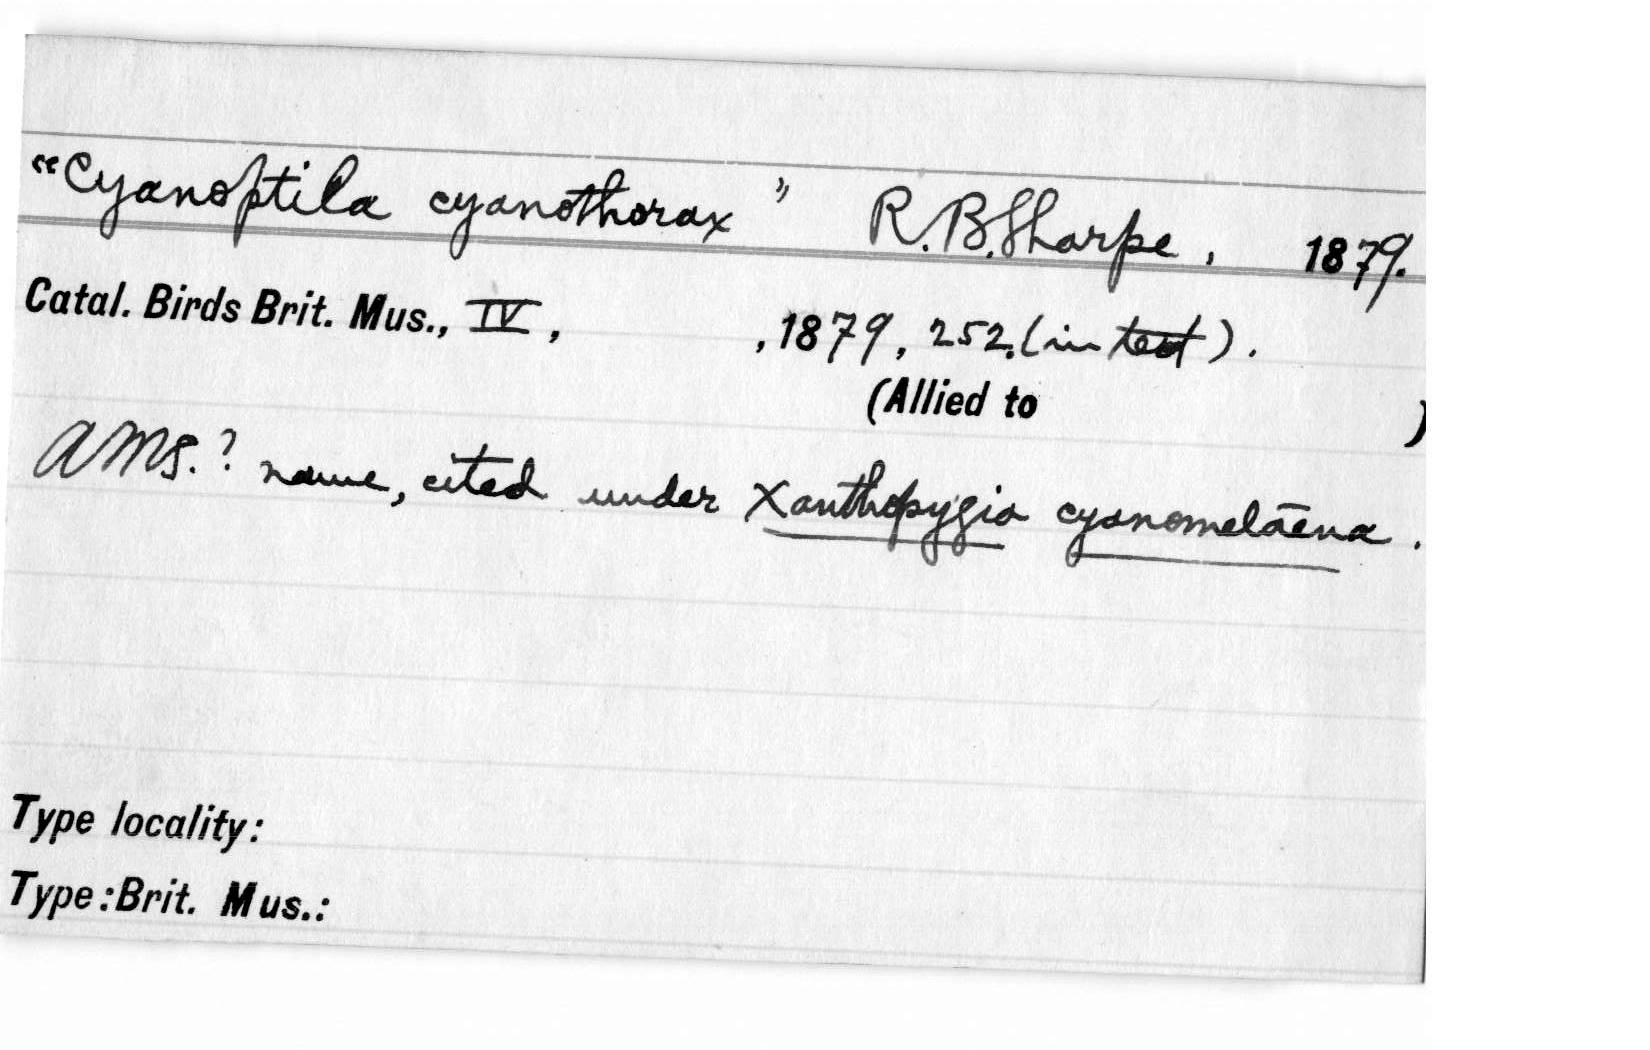 "Cyanoptila cyanothorax" R.B.Sharpe, 1879.
Catal. Birds Brit. Mus., IV, , 1879, 252.(in text).
(Allied to )
A MS.? name, cited under Xanthopygia cyanomelāena.
Type locality:
Type:Brit. Mus.: